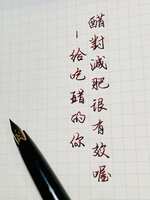 醋對減肥很有效喔
-給吃醋的你